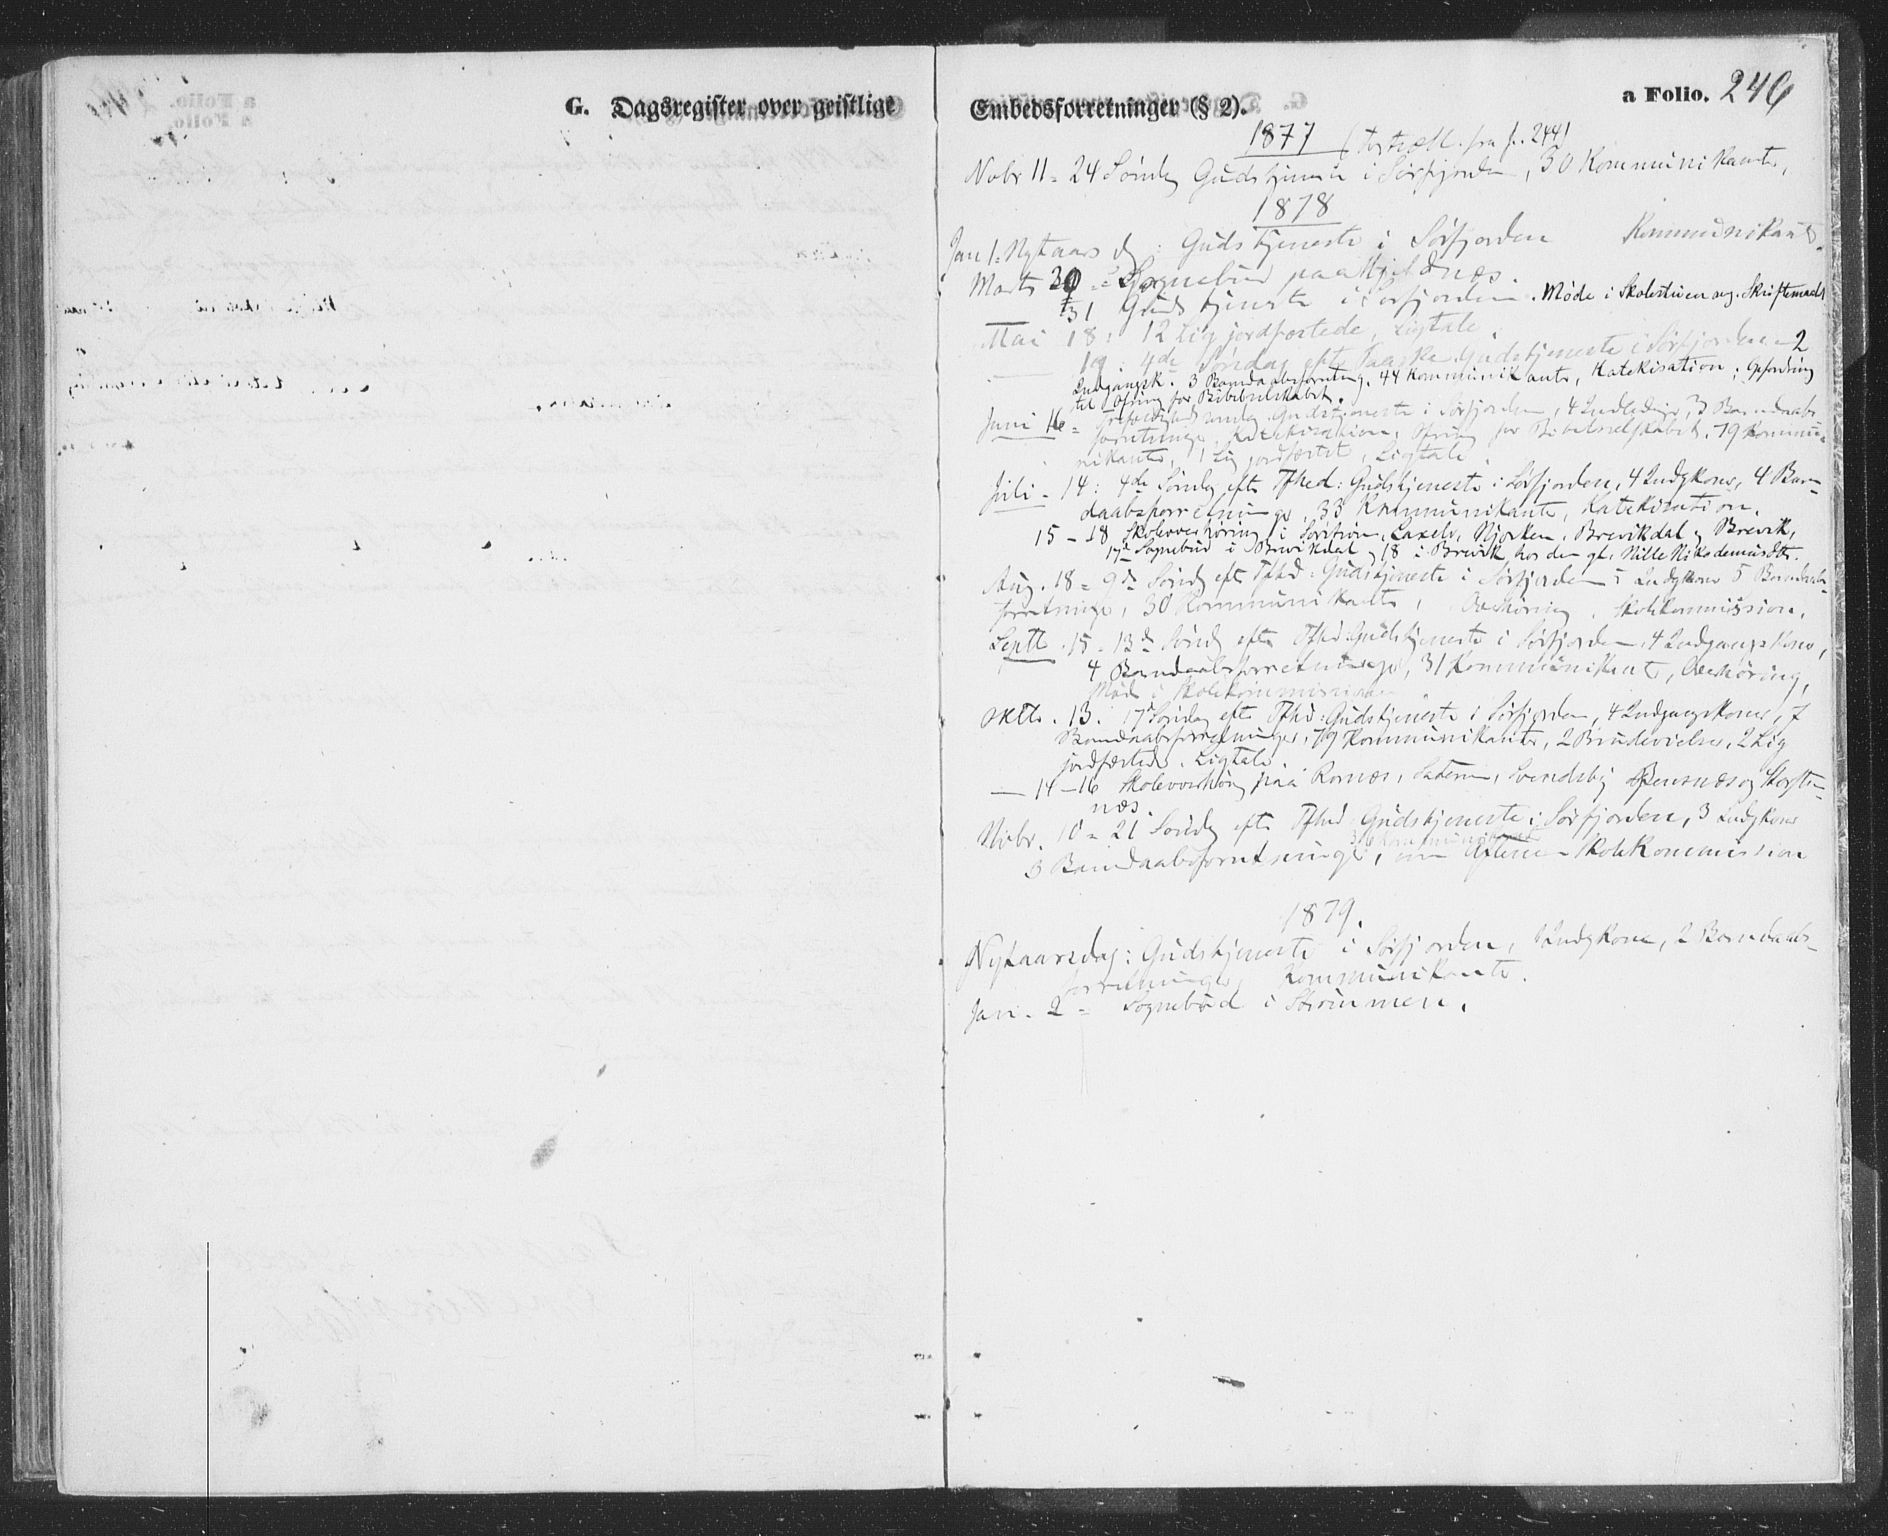 G. Dagsregister over geistlige Embedsforretninger (§ 2).
a Folio. 246
1877 (fra f. 244)
Nobr 11 - 24 Søndag Gudstjeneste i Sørfjorden, 30 Kommunikanter,
1878
Jan 1. Nytaarsd: Gudstjeneste i Sørfjorden Kommunikanter.
Marts 30 - Sognebud paa
31 Gudstjeneste i Sørfjorden. Møde i Skolestuen ang.
Mai 18: 12 Lig jordfæstede, Ligtale.
— 19: 4de Søndag efter Paaske Gudstjeneste i Sørfjorden - 2
Indgangsk. 3 Barndaabsforretning. 44 Kommunikanter, Katekisation; Opfordring
til Ofring for Bibelselskabet.
Juni 16 - Trefoldighedssøndag Gudstjeneste i Sørfjorden, 4 Indledninger, 3 Barndaabs
forretninger, Katekisation, Ofring for Bibelselskabet, 79 Kommu-
nikanter, 1 Lig jordfæstet, Ligtale.
Juli - 14: 4de Søndag efter Tfhed: Gudstjeneste i Sørfjorden, 4 Indgkoner, 4 Barn-
daabsforretninger, 33 Kommunikanter, Katekisation.
15 - 18 Skoleoverhøring i Laxelv, Njorken, Brevikdal og Brevik,
17de Sognebud i Brevikdal og 18 i Brevik hos den gl. Nille Nikodemusdtr.
Aug. 18 - 9de Sønd efter Tfhd: Gudstjeneste i Sørfjorden 5 Indgkoner 5 Barndaabs-
forretninger, 30 Kommunikanter, Overhøring, Skolekommission.
Septb. 15 - 13de Sønd efter Tfhd: Gudstjeneste i Sørfjorden, 4 Indgangskoner,
4 Barndaabsforretninger, 31 Kommunikanter, Overhøring,
Møde i Skolekommissionen
Oktb. 13. 17de Søndag efter Tfhd: Gudstjeneste i Sørfjorden, 4 Indgangskoner, 7
Barndaabsforretninger, 79 Kommunikanter, 2 Brudevielser, 2 Lig
jordfæstede. Ligtale.
— 14 - 16 Skoleoverhøring paa Ramnæs, Svendsby og Storste-
næs.
Novbr. 10 - 21 Søndag efter Tfhed: Gudstjeneste i Sørfjorden, 3 Indgkoner
Kommunikanter
3 Barndaabsforretninger, om Aftenen Skolekommission
1879.
Nytaarsdag: Gudstjeneste i Sørfjorden, 1 Indgkone, 2 Barndaabs-
forretninger, Kommunikanter.
Jan. 2 - Sognebud i Strømmen.